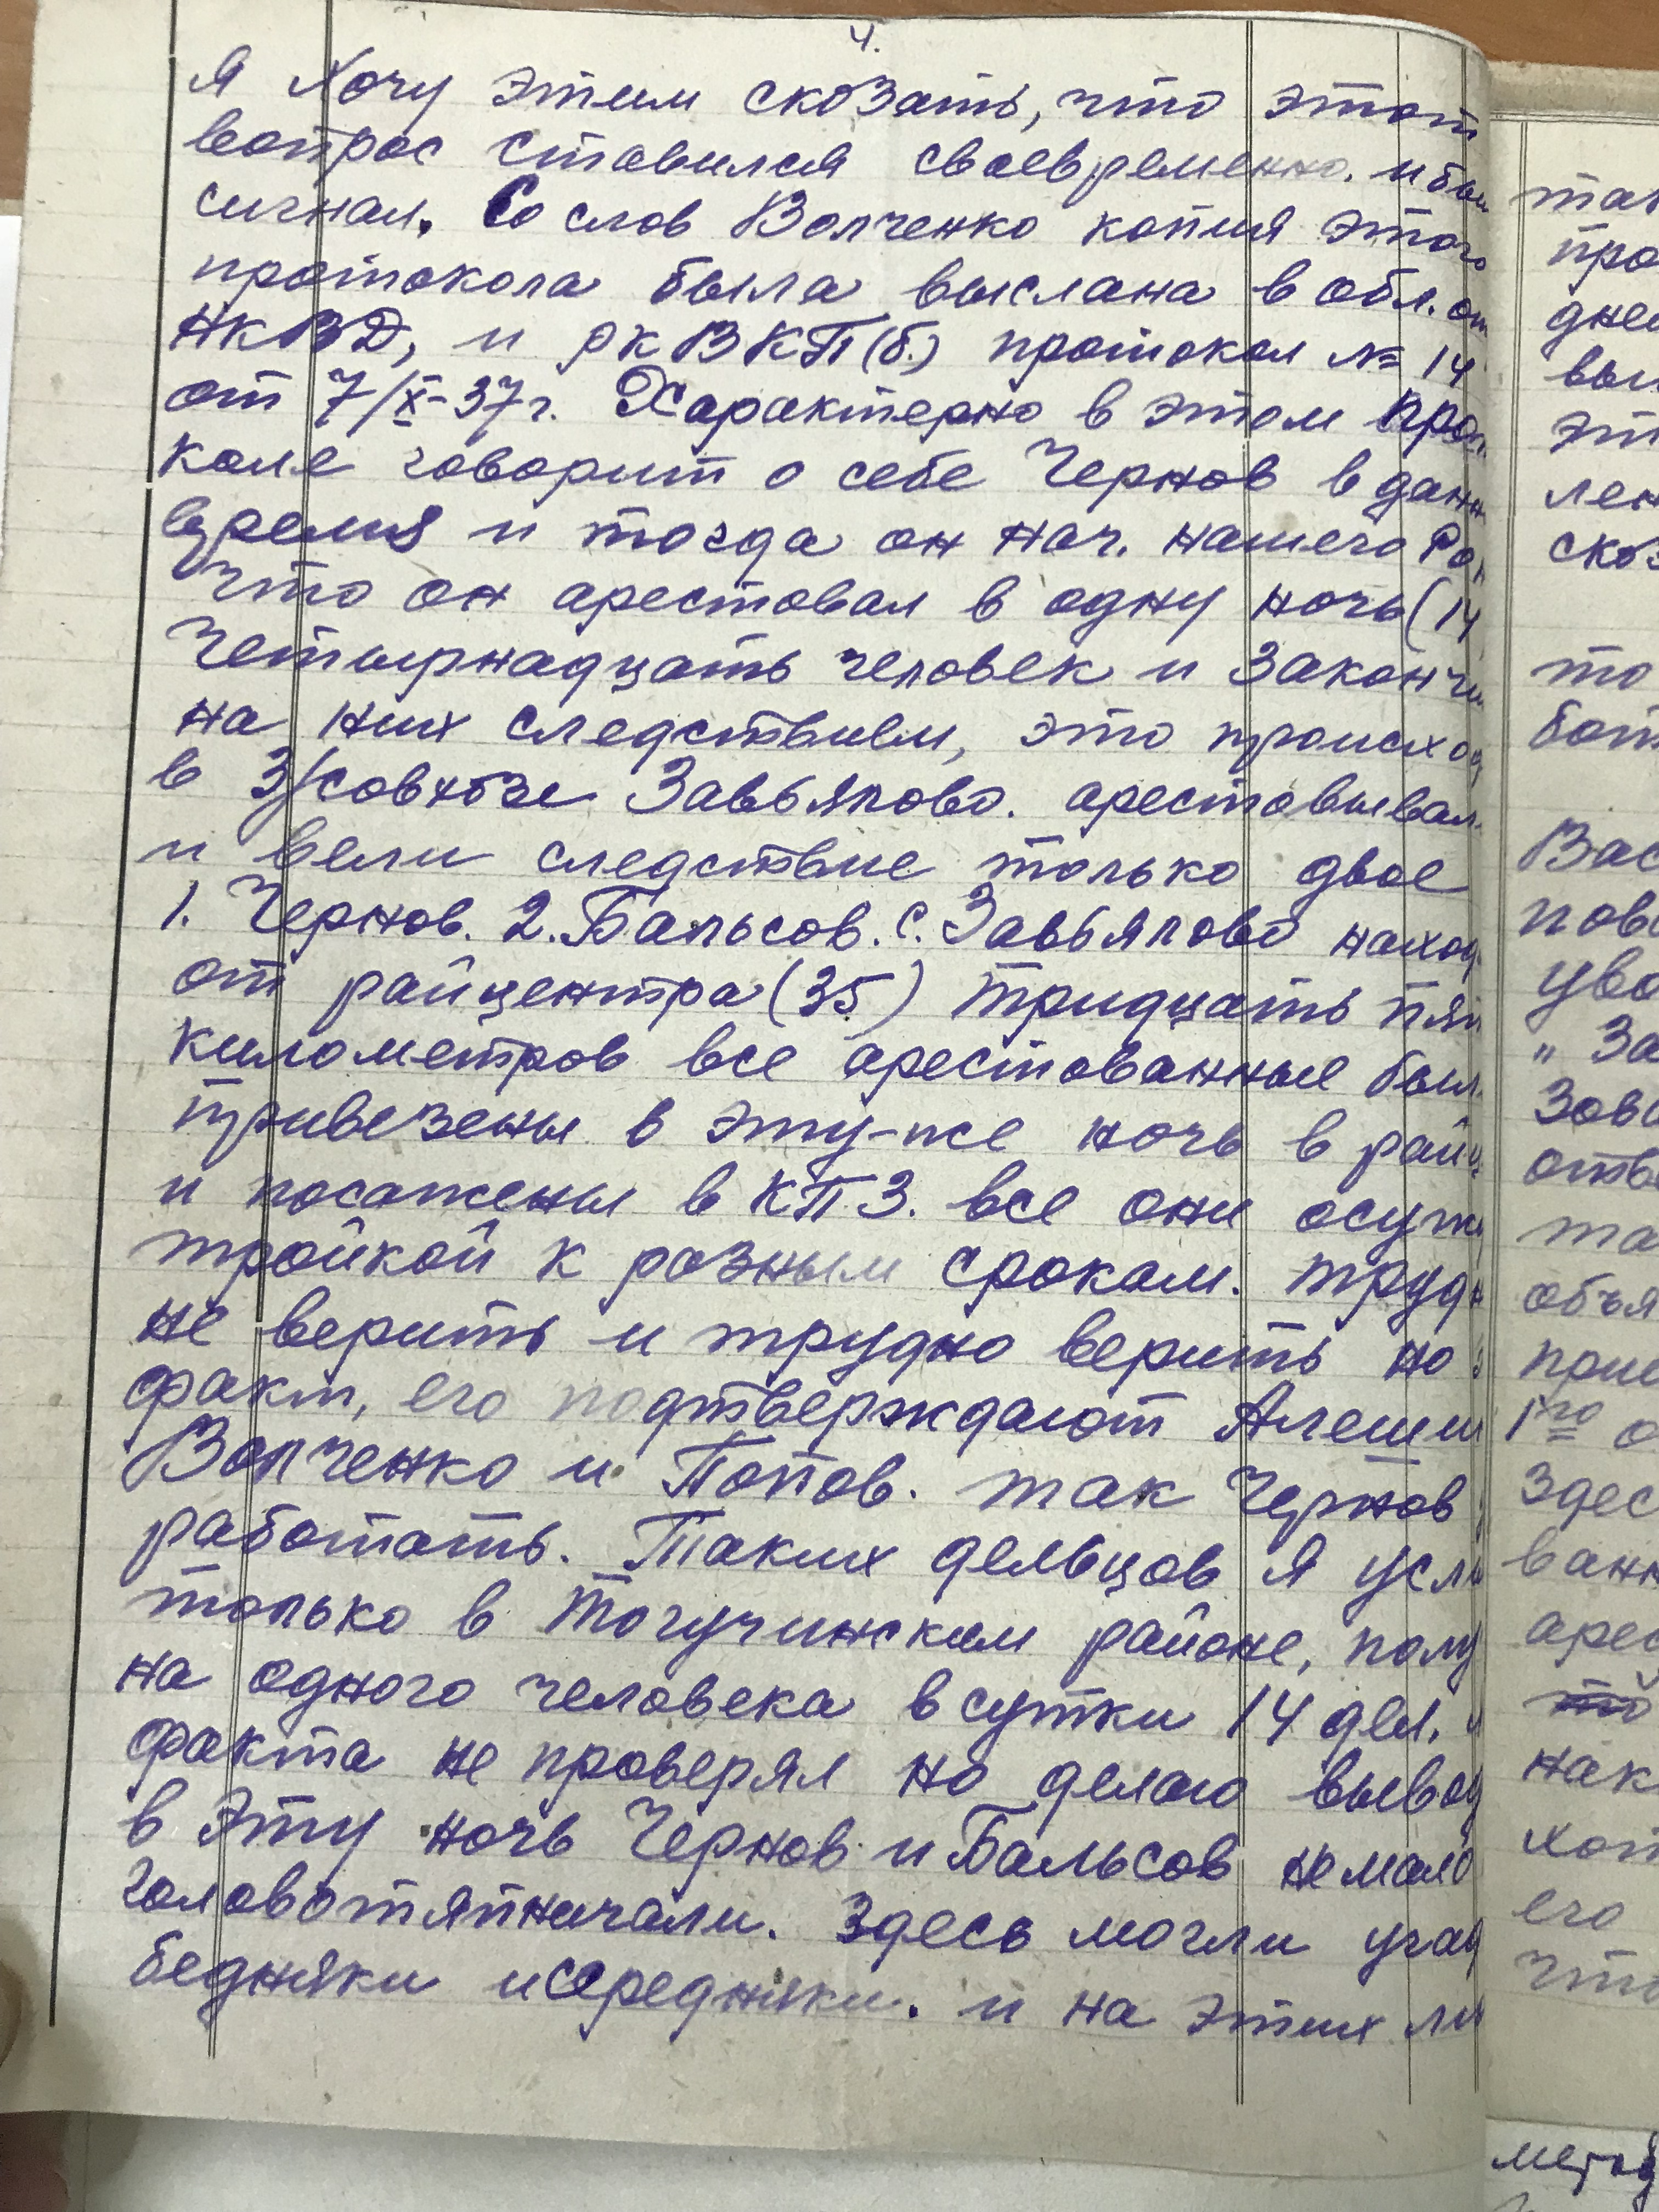 4.
Я хочу этим скозать, что этот
вопрос ставился своевременно. и был
сигнал. Со слов Волченко копия этого
протокола была выслана в обл. от
НКВД, и РКВКП(б.) протокол № 14
от 7/X-37г. Характерно в этом прот
коле говорит о себе Чернов в данн
время и тогда он нач. нашего Ро
что он арестовал в одну ночь (14
четырнадцать человек и закончи
на них следствием, это происход
в З/совхозе Завьялово. арестовывал
и вели следствие только двое
1. Чернов. 2. Бальсов. с. Завьялово наход
от райцентра (35) тридцать пят
километров все арестованные был
привезены в эту-же ночь в райц
и посажены в КПЗ. все они осуж
тройкой к разным срокам. трудн
не верить и трудно верить но э
факт, его подтверждают Алеши
Волченко и Попов. так Чернов
работать. Таких дельцов я услы
только в Тогучинском районе, полу
на одного человека в сутки 14 дел.
факта не проверял но делаю вывод
в эту ночь Чернов и Бальсов немало
головотяпничали. Здесь могли угад
бедняки и середняки. и на этих ли
так
про
дне
вы
эт
лен
скоз
то
бот
Вас
пов
ува
„За
Зов
отв
та
объя
при
1го о
Здес
ван
арес
нак
хот
его
что
метод